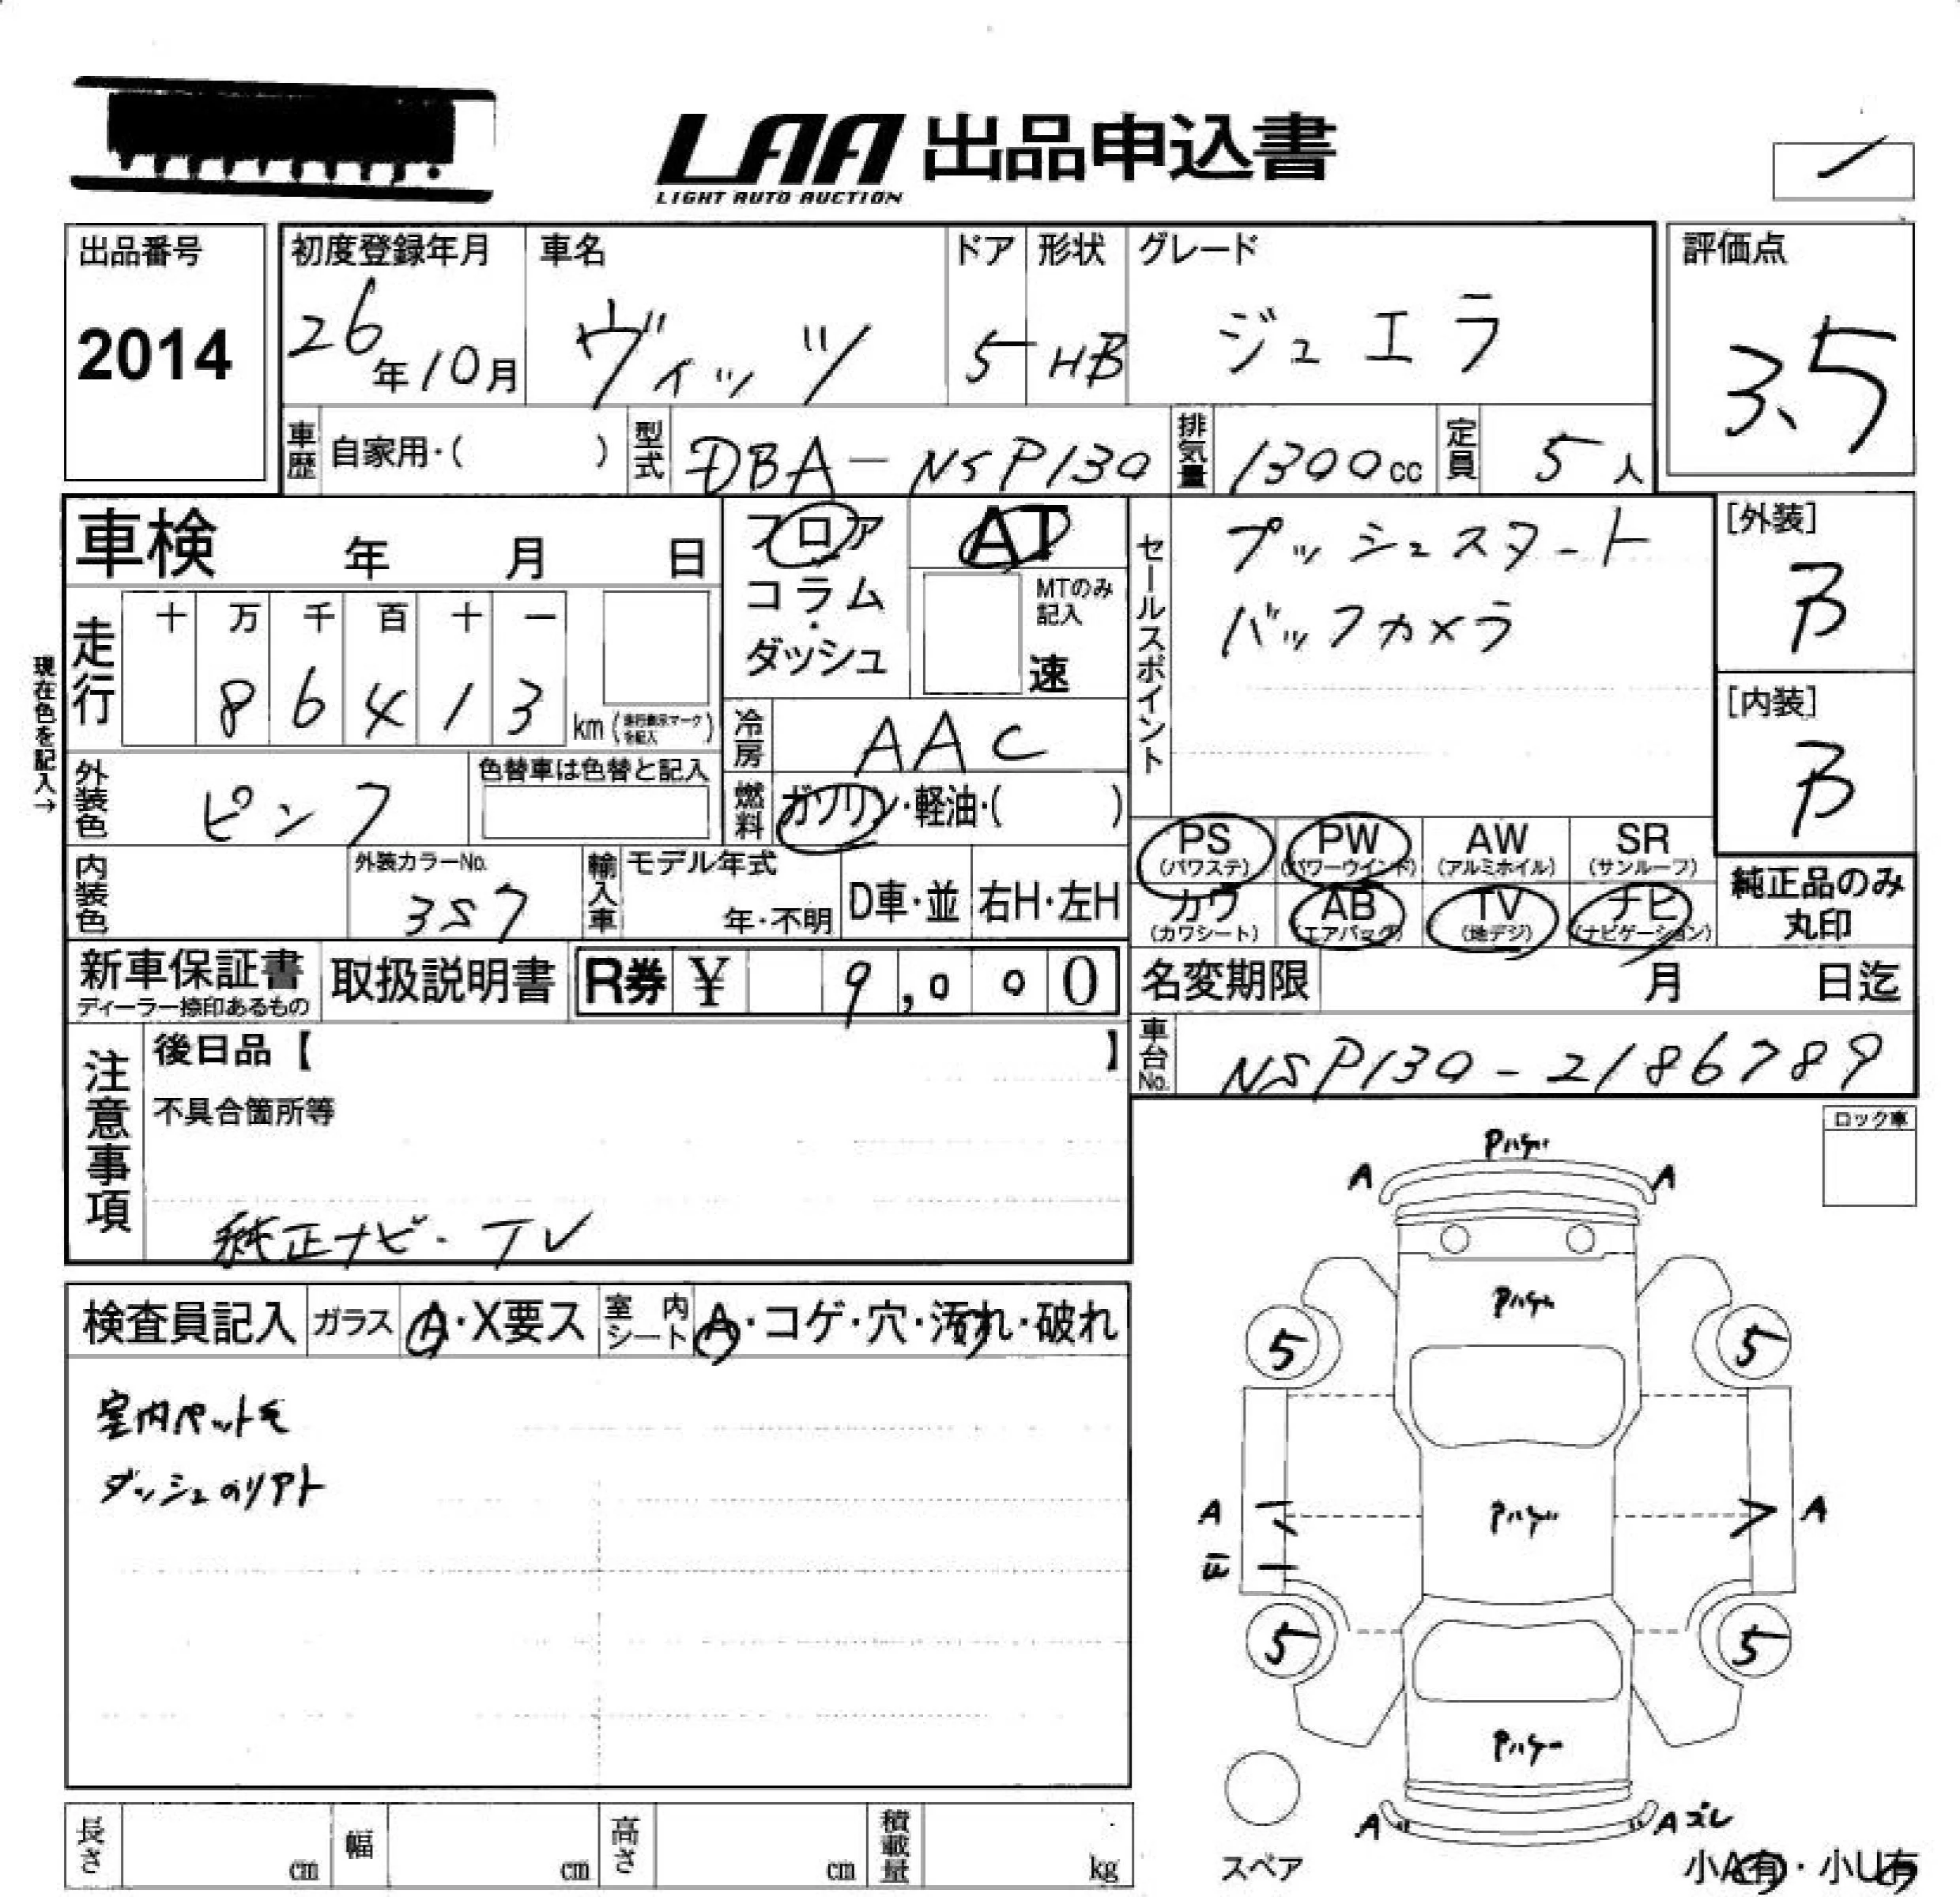 LAA 出品申込書
LIGHT AUTO AUCTION
出品番号
2014
初度登録年月
26年10月
車名
ヴィッツ
ドア
5
形状
HB
グレード
ジュエラ
評価点
3.5
車歴
自家用・( )
型式
DBA-NSP130
排気量
1300cc
定員
5人
車検 年 月 日
フロア
コラム
・
ダッシュ
AT
MTのみ
記入
速
セールスポイント
プッシュスタート
バックカメラ
[外装]
B
[内装]
B
現在色を記入→
走行
十 万 千 百 十 一
8 6 4 1 3
km(走行表示マークを記入)
冷房
AAC
外装色
ピンク
色替車は色替と記入
燃料
ガソリン・軽油・( )
PS
(パワステ)
PW
(パワーウインド)
AW
(アルミホイル)
SR
(サンルーフ)
内装色
外装カラーNo.
3S7
輸入車
モデル年式
年・不明
D車・並
右H・左H
カワ
(カワシート)
AB
(エアバック)
TV
(地デジ)
ナビ
(ナビゲーション)
純正品のみ
丸印
新車保証書
ディーラー捺印あるもの
取扱説明書
R券 ¥ 9,000
名変期限 月 日迄
車台No.
NSP130-2186789
注意事項
後日品【 】
不具合箇所等
純正ナビ・TV
ロック車
A A
検査員記入
ガラス
A・X要ス
室内シート
A・コゲ・穴・汚れ・破れ
室内ペット毛
5 5
A A
5 5
A Aズレ
スペア
小A有・小U有
長さ cm
幅 cm
高さ cm
積載量 kg